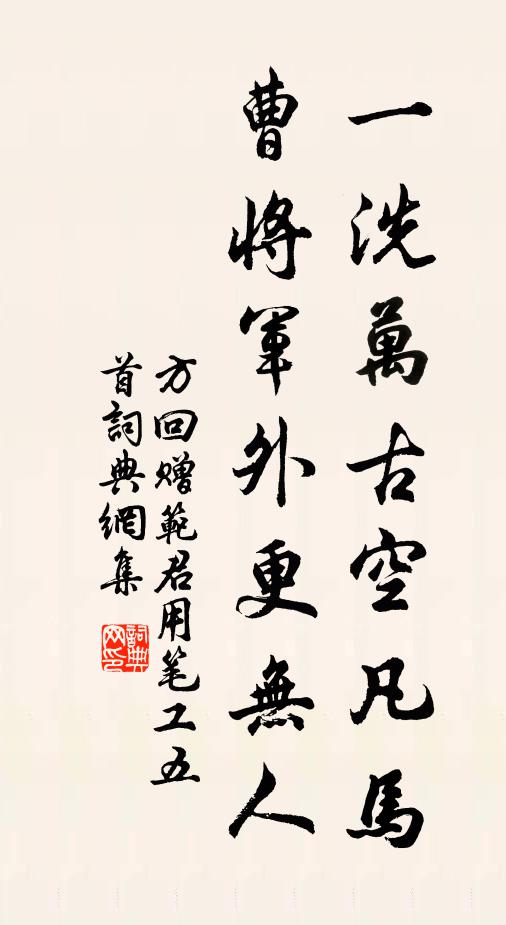 一洗萬古空凡馬
曹將軍外更無人
方回贈範君用笔工五
首詞典網集
詞典
网印